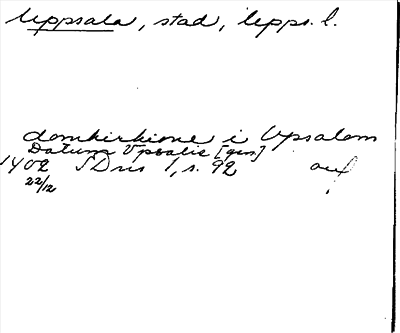 Uppsala, stad, Upps. l.
domkirkione i Vpsalom
Datum Vpsalie [gen]
1402 SDns 1, s. 92 avf
22/12